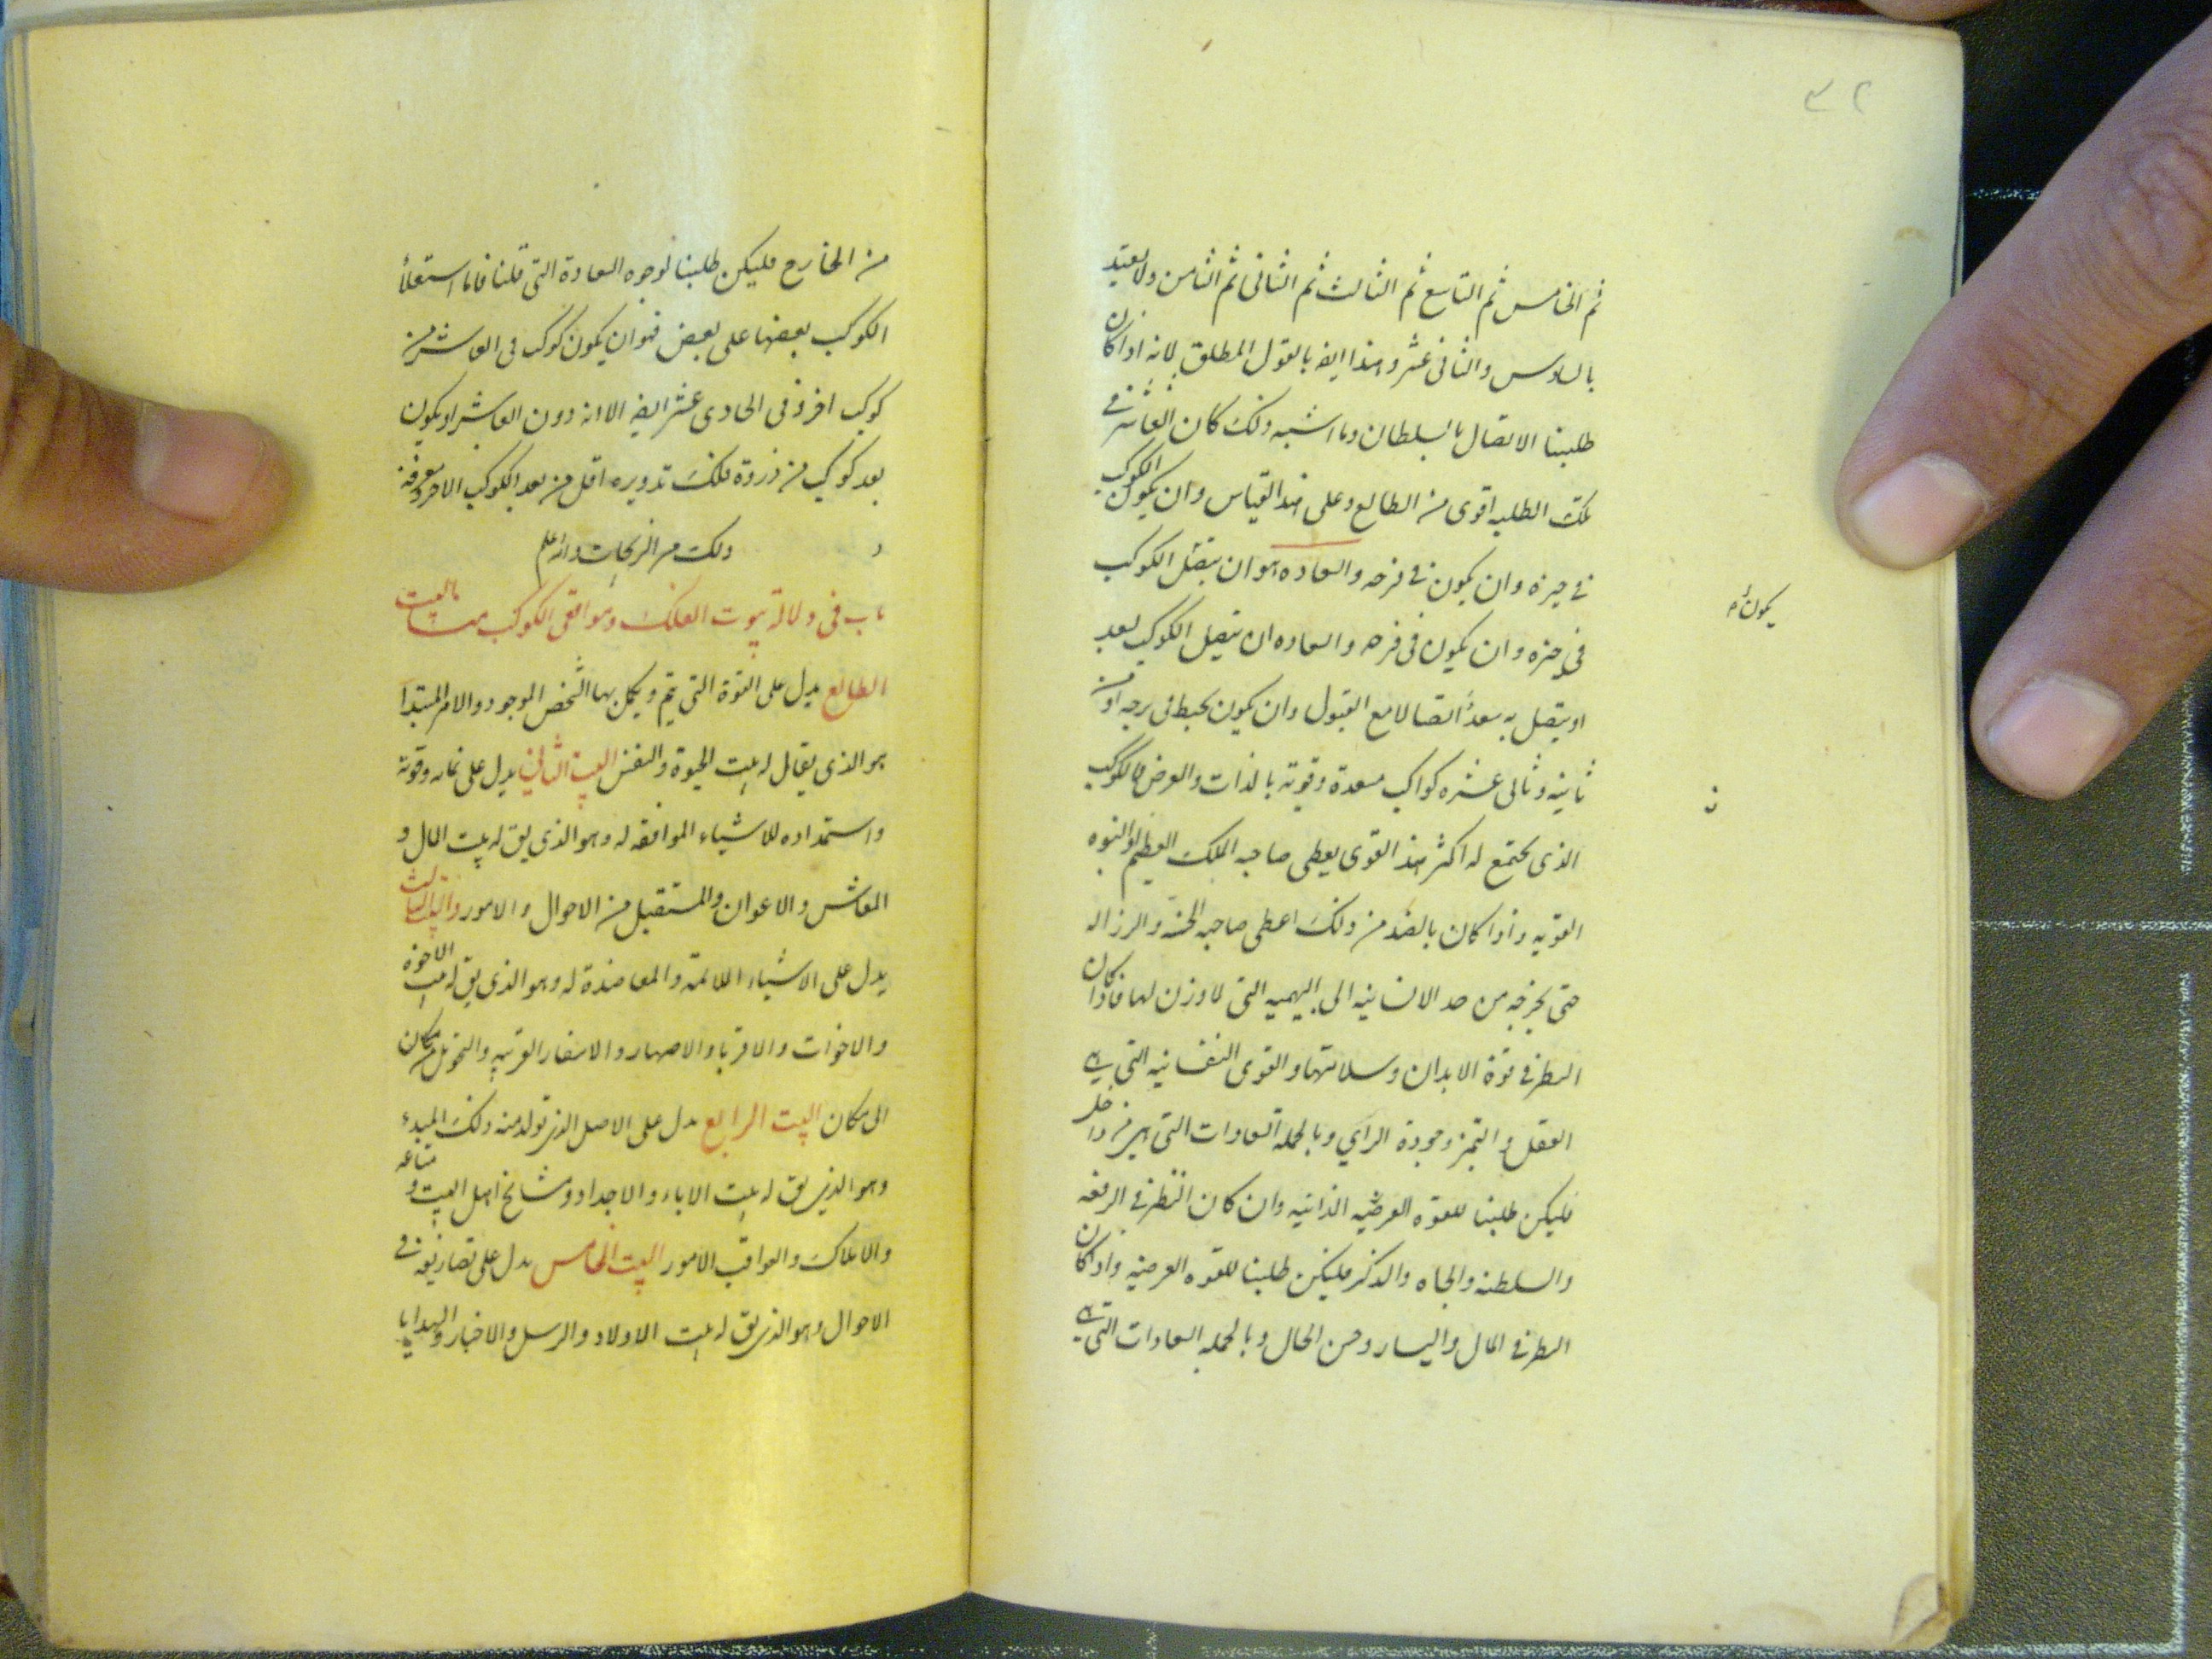 ٣٢
ثم الخامس ثم التاسع ثم الثالث ثم الثانى ثم الثامن ولا يعتد
بالسادس والثانى عشر وهذا ايضا بالقول المطلق لانه اذا كان
طلبنا الاتصال بالسلطان وما اشبه ذلك كان العاشر فى
تلك الطلبه اقوى من الطالع وعلى هذا القياس وان يكون الكوكب
فى حيزه وان يكون فى فرحه والسعاده هو ان يتصل الكوكب
يكون
فى حيزه وان يكون فى فرحه والسعاده ان يتصل الكوكب بعد
او يتصل به سعد اتصالا مع القبول وان يكون يحيط فى درجه او من
ثانيه وثانى عشره كواكب مسعدة وقوية بالذات والعرض فالكوكب
الذى يجتمع له اكثر هذه القوى يعطى صاحبه الملك العظيم والنبوه
القويه واذا كان بالضد من ذلك اعطى صاحبه الخسه والرزاله
حتى يخرجه من حد الانسانيه الى البهيميه التى لا وزن لها فاذا كان
النظر فى قوة الابدان وسلامتها والقوى النفسانيه التى هى
العقل والتميز وجودة الراى وبالجمله السعادات التى هى من داخل
فليكن طلبنا للقوه العرضيه الذاتيه وان كان النظر فى الرفعه
والسلطنه والجاه والذكر فليكن طلبنا للقوه العرضيه واذا كان
النظر فى المال واليسار وحسن الحال وبالجمله السعادات التى هى
من الخارج فليكن طلبنا لوجوه السعادة التى قلنا فاما استعلأ
الكوكب بعضها على بعض فهو ان يكون كوكب فى العاشر من
كوكب اخر وفى الحادى عشر ايضا الا انه دون العاشر او يكون
بعد كوكب من ذروة فلك تدويره اقل من بعد الكوكب الاخر ومعرفة
ذلك من الزيجات والله اعلم
باب فى دلالة بيوت الفلك ومواقع الكوكب منها بالبيت
الطالع يدل على القوة التى يتم ويكمل بها الشخص الموجود والامر المبتدأ
هو الذى يقال له بيت الحيوة والنفس البيت الثانى يدل على نمائه وقوته
واستمداده للاشياء الموافقه له وهو الذى يق له بيت المال و
المعاش والاعوان والمستقبل من الاحوال والامور والبيت الثالث
يدل على الاشياء الملائمة والمعاضدة له وهو الذى يق له بيت الاخوه
والاخوات والاقربا والاصهار والاسفار القريبه والتحويل من مكان
الى مكان البيت الرابع يدل على الاصل الذى تولد منه ذلك المبدء
وهو الذى يق له بيت الاباء والاجداد ومشايخ اهل البيت و متاعه
والاملاك والعواقب الامور البيت الخامس يدل على تصاريفه فى
الاحوال وهو الذى يق له بيت الاولاد والرسل والاخبار والهدايا